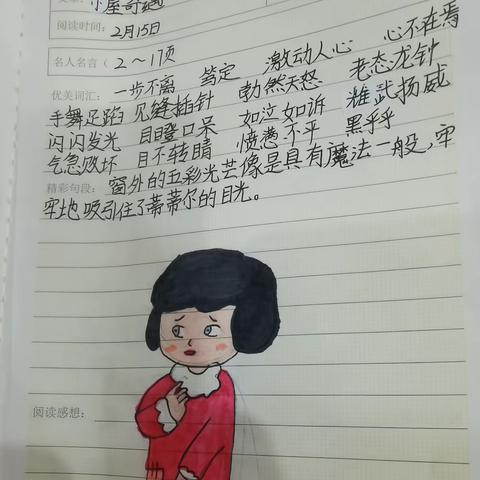 小屋奇遇
阅读时间： 2月15日
名人名言（ 2～17页 激动人心 心不在焉
优美词汇： 一步不离 笃定 勃然天怒 老态龙钟
手舞足蹈 见缝插针 如泣如诉 武扬威
闪闪发光 目瞪口呆 愤懑不平 黑乎乎
气急败坏 目不转睛
精彩句段： 窗外的五彩光芒像是具有魔法一般,牢
牢地吸引住了蒂蒂尔的目光。
阅读感想：